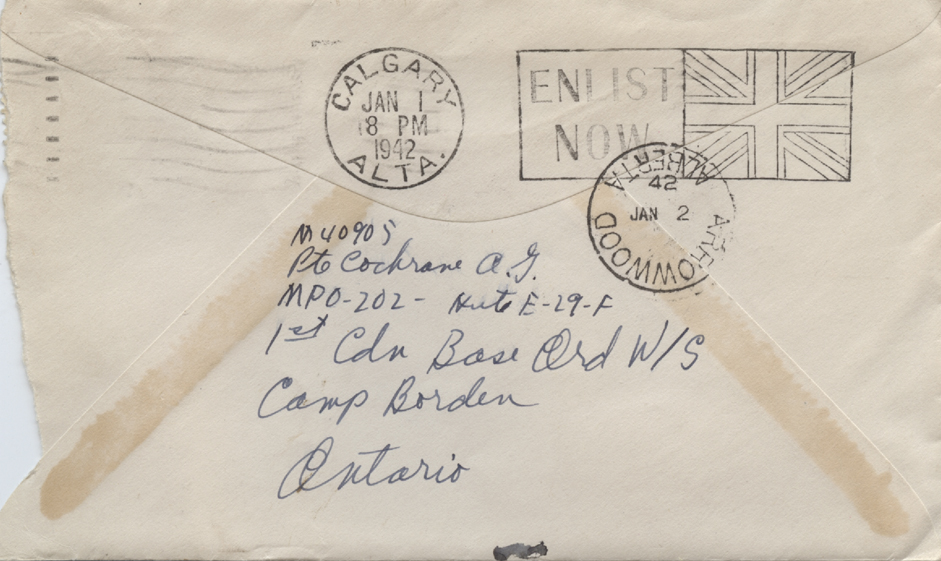 CALGARY
JAN 1
8 PM
1942
ALTA.
ENLIST
NOW
ARROWWOOD
ALBERTA
42
JAN 2
M 40905
Pte Cochrane A.G.
MPO-202- Hute E-29-F
1st Cdn Base Ord W/S
Camp Borden
Ontario